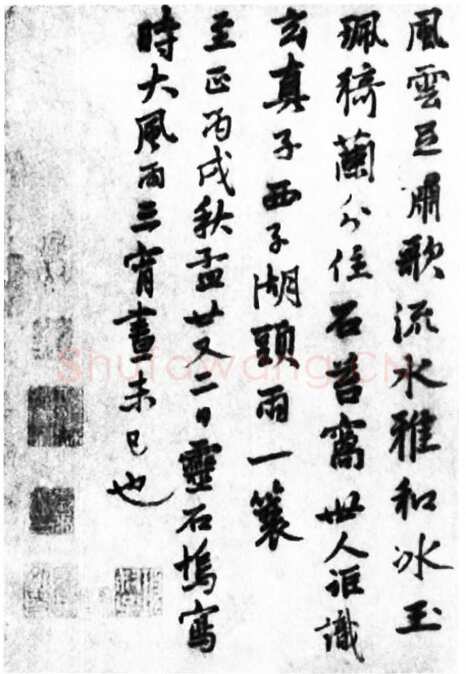 風雲足嘯歌流水雅和冰玉
珮猗蘭分住石苔窩世人詎識
玄真子西子湖頭雨一簑
至正丙戌秋孟廿又二日靈石塢寫
時大風雨三宵晝未已也
Shufawang.CN